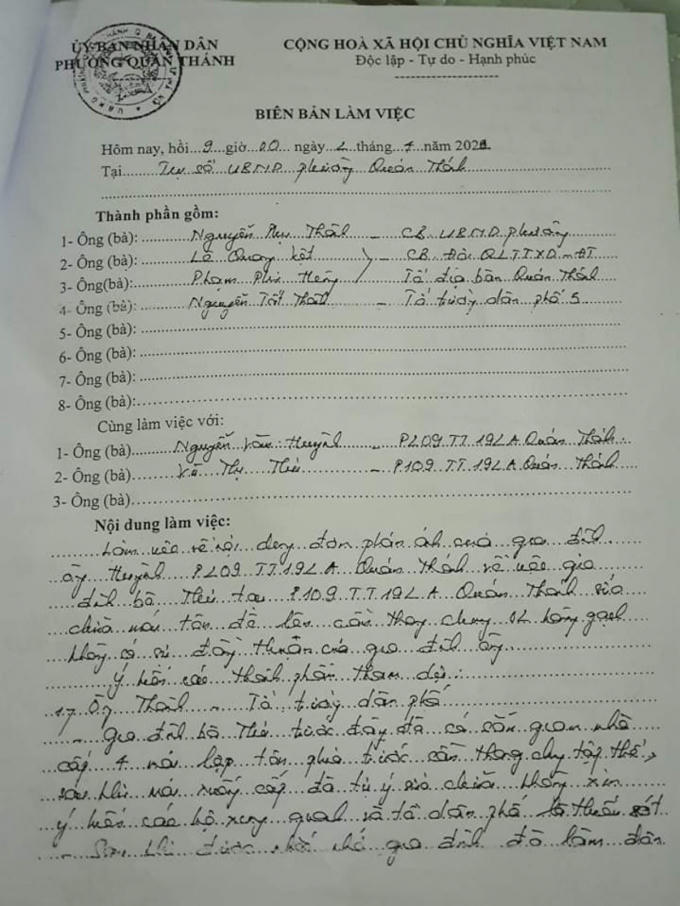 ỦY BAN NHÂN DÂN
PHƯỜNG QUÁN THÁNH
CỘNG HOÀ XÃ HỘI CHỦ NGHĨA VIỆT NAM
Độc lập - Tự do - Hạnh phúc
BIÊN BẢN LÀM VIỆC
Hôm nay, hồi 9 giờ 00 ngày tháng năm 202
Tại Trụ sở UBND phường Quán Thánh
Thành phần gồm:
1- Ông (bà): Nguyễn Thành - CB UBND phường
2- Ông (bà): Lê Quang - CB Đội QLTTXD - ĐT
3- Ông(bà): Phạm - Tổ địa bàn Quán Thánh
4- Ông (bà): Nguyễn - Tổ trưởng dân phố 5
5- Ông (bà):
6- Ông (bà):
7- Ông (bà):
8- Ông (bà):
Cùng làm việc với:
1- Ông (bà) Nguyễn Văn Huỳnh - P209 TT 19L A Quán Thánh
2- Ông (bà) Vũ Thị - P109 TT 19L A Quán Thánh
3- Ông (bà)
Nội dung làm việc:
Làm việc về nội dung đơn phản ánh của gia đình
ông Huỳnh P209 TT 19L A Quán Thánh về việc gia
đình bà tại P109 TT 19L A Quán Thánh sửa
chữa mái tôn đè lên cầu thang chung bằng gạch
không có sự đồng thuận của gia đình ông.
Ý kiến các thành phần tham dự:
1. Ông - Tổ trưởng dân phố
- Gia đình bà trước đây đã có sẵn gian nhà
cấp 4 mái lợp tôn phía trước cầu thang chung tập thể,
sau khi mái xuống cấp đã tự ý sửa chữa không xin
ý kiến các hộ xung quanh và tổ dân phố là thiếu sót
- Sau khi được nhắc nhở gia đình đã làm đơn